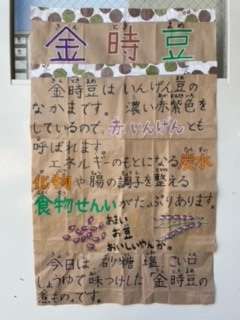 金時豆
金時豆はいんげん豆の
なかまです。濃い赤紫色を
しているので、赤いんげんとも
呼ばれます。
エネルギーのもとになる炭水
化物や腸の調子を整える
食物せんいがたっぷりあります。
あまい
お豆
おいしいやんか。
今日は砂糖、塩、こい口
しょうゆで味つけした「金時豆の
煮もの」です。